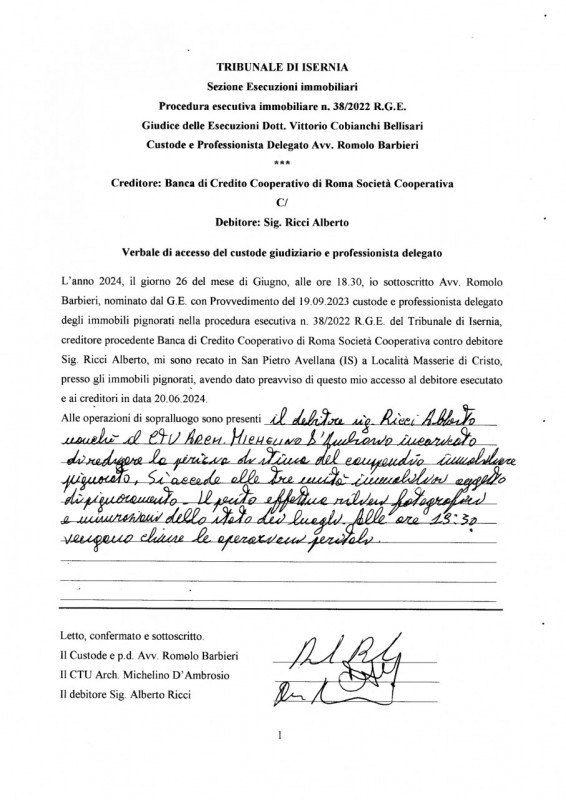 TRIBUNALE DI ISERNIA
Sezione Esecuzioni immobiliari
Procedura esecutiva immobiliare n. 38/2022 R.G.E.
Giudice delle Esecuzioni Dott. Vittorio Cobianchi Bellisari
Custode e Professionista Delegato Avv. Romolo Barbieri
***
Creditore: Banca di Credito Cooperativo di Roma Società Cooperativa
C/
Debitore: Sig. Ricci Alberto
Verbale di accesso del custode giudiziario e professionista delegato
L'anno 2024, il giorno 26 del mese di Giugno, alle ore 18.30, io sottoscritto Avv. Romolo
Barbieri, nominato dal G.E. con Provvedimento del 19.09.2023 custode e professionista delegato
degli immobili pignorati nella procedura esecutiva n. 38/2022 R.G.E. del Tribunale di Isernia,
creditore procedente Banca di Credito Cooperativo di Roma Società Cooperativa contro debitore
Sig. Ricci Alberto, mi sono recato in San Pietro Avellana (IS) a Località Masserie di Cristo,
presso gli immobili pignorati, avendo dato preavviso di questo mio accesso al debitore esecutato
e ai creditori in data 20.06.2024.
Alle operazioni di sopralluogo sono presenti il debitore sig. Ricci Alberto
nonché il CTU Arch. Michelino D'Ambrosio incaricato
di redigere la perizia di stima del compendio immobiliare
pignorato. Si accede alle tre unità immobiliari oggetto
di pignoramento. Il perito effettua rilievi fotografici
e misurazioni dello stato dei luoghi. Alle ore 19:30
vengono chiuse le operazioni peritali.
Letto, confermato e sottoscritto.
Il Custode e p.d. Avv. Romolo Barbieri
Il CTU Arch. Michelino D'Ambrosio
Il debitore Sig. Alberto Ricci
1